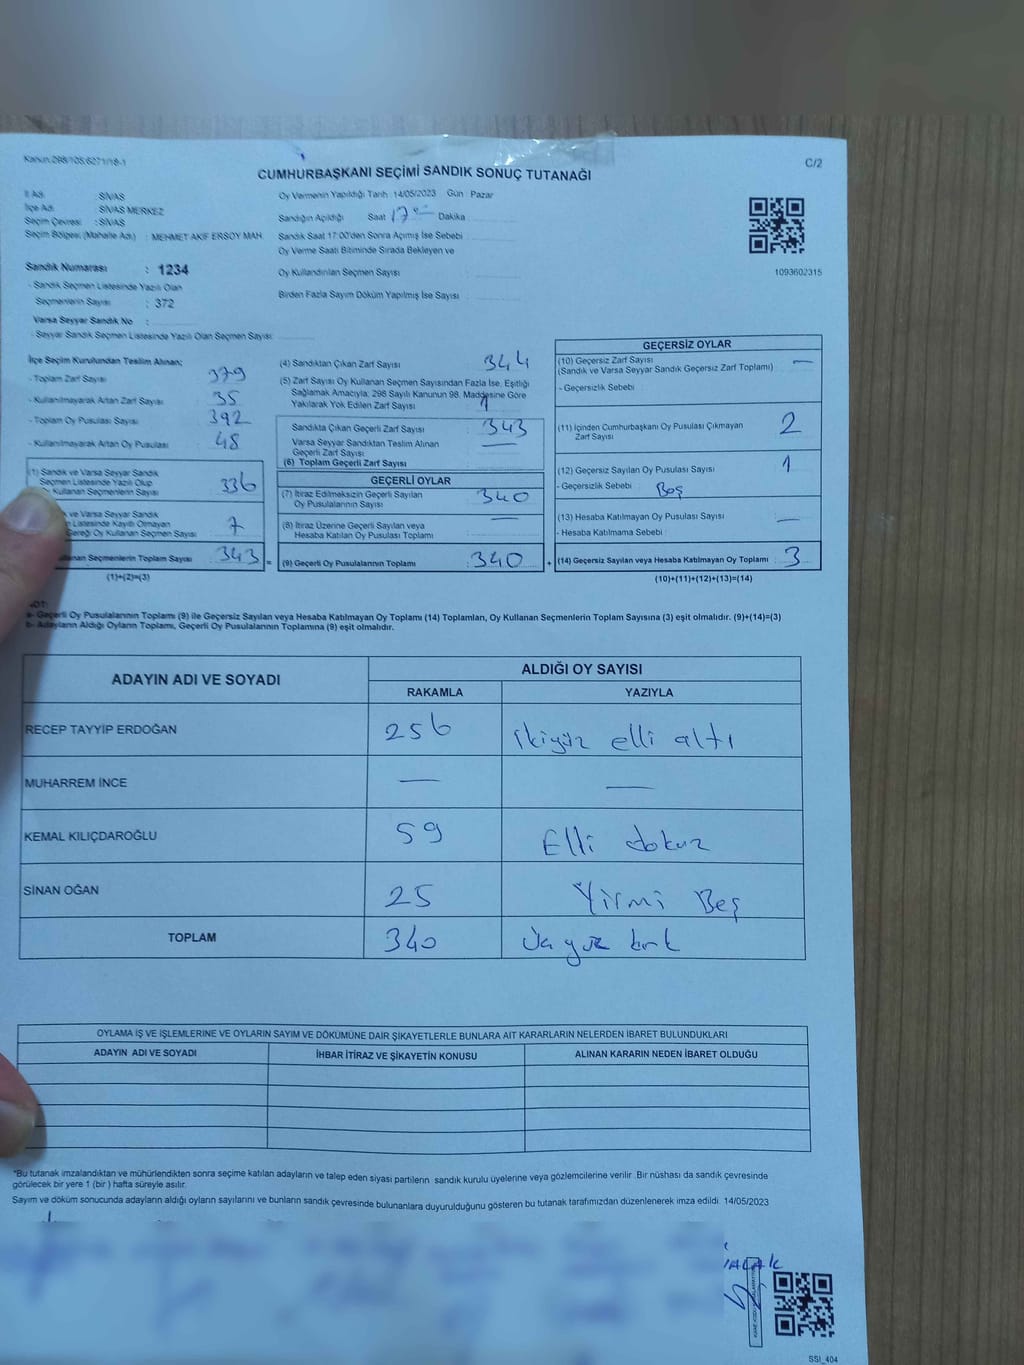 Kanun:298/105;6271/18-1
C/2
CUMHURBAŞKANI SEÇİMİ SANDIK SONUÇ TUTANAĞI
İl Adı : SİVAS
İlçe Adı : SİVAS MERKEZ
Seçim Çevresi : SİVAS
Seçim Bölgesi (Mahalle Adı) : MEHMET AKİF ERSOY MAH.
Sandık Numarası : 1234
- Sandık Seçmen Listesinde Yazılı Olan
Seçmenlerin Sayısı : 372
Varsa Seyyar Sandık No :
- Seyyar Sandık Seçmen Listesinde Yazılı Olan Seçmen Sayısı:
Oy Vermenin Yapıldığı Tarih : 14/05/2023 Gün : Pazar
Sandığın Açıldığı Saat 17 Dakika
Sandık Saat 17:00'den Sonra Açımış İse Sebebi
Oy Verme Saati Bitiminde Sırada Bekleyen ve
Oy Kullandırılan Seçmen Sayısı :
Birden Fazla Sayım Döküm Yapılmış İse Sayısı :
1093602315
İlçe Seçim Kurulundan Teslim Alınan;
- Toplam Zarf Sayısı : 379
- Kullanılmayarak Artan Zarf Sayısı : 35
- Toplam Oy Pusulası Sayısı : 392
- Kullanılmayarak Artan Oy Pusulası : 48
(1) Sandık ve Varsa Seyyar Sandık
Seçmen Listesinde Yazılı Olup
Oy Kullanan Seçmenlerin Sayısı : 336
ve Varsa Seyyar Sandık
Listesinde Kayıtlı Olmayan
Gereği Oy Kullanan Seçmen Sayısı : 7
Kullanan Seçmenlerin Toplam Sayısı : 343 =
(1)+(2)=(3)
(4) Sandıktan Çıkan Zarf Sayısı : 344
(5) Zarf Sayısı Oy Kullanan Seçmen Sayısından Fazla İse, Eşitliği
Sağlamak Amacıyla; 298 Sayılı Kanunun 98. Maddesine Göre
Yakılarak Yok Edilen Zarf Sayısı : 1
Sandıkta Çıkan Geçerli Zarf Sayısı : 343
Varsa Seyyar Sandıktan Teslim Alınan
Geçerli Zarf Sayısı : —
(6) Toplam Geçerli Zarf Sayısı :
GEÇERLİ OYLAR
(7) İtiraz Edilmeksizin Geçerli Sayılan
Oy Pusulalarının Sayısı : 340
(8) İtiraz Üzerine Geçerli Sayılan veya
Hesaba Katılan Oy Pusulası Toplamı : —
(9) Geçerli Oy Pusulalarının Toplamı : 340 +
GEÇERSİZ OYLAR
(10) Geçersiz Zarf Sayısı : —
(Sandık ve Varsa Seyyar Sandık Geçersiz Zarf Toplamı)
- Geçersizlik Sebebi :
(11) İçinden Cumhurbaşkanı Oy Pusulası Çıkmayan
Zarf Sayısı : 2
(12) Geçersiz Sayılan Oy Pusulası Sayısı : 1
- Geçersizlik Sebebi : Boş
(13) Hesaba Katılmayan Oy Pusulası Sayısı : —
- Hesaba Katılmama Sebebi :
(14) Geçersiz Sayılan veya Hesaba Katılmayan Oy Toplamı : 3
(10)+(11)+(12)+(13)=(14)
NOT:
a- Geçerli Oy Pusulalarının Toplamı (9) ile Geçersiz Sayılan veya Hesaba Katılmayan Oy Toplamı (14) Toplamları, Oy Kullanan Seçmenlerin Toplam Sayısına (3) eşit olmalıdır. (9)+(14)=(3)
b- Adayların Aldığı Oyların Toplamı, Geçerli Oy Pusulalarının Toplamına (9) eşit olmalıdır.
ADAYIN ADI VE SOYADI
ALDIĞI OY SAYISI
RAKAMLA YAZIYLA
RECEP TAYYİP ERDOĞAN 256 ikiyüz elli altı
MUHARREM İNCE — —
KEMAL KILIÇDAROĞLU 59 Elli dokuz
SİNAN OĞAN 25 Yirmi Beş
TOPLAM 340 Üçyüz kırk
OYLAMA İŞ VE İŞLEMLERİNE VE OYLARIN SAYIM VE DÖKÜMÜNE DAİR ŞİKAYETLERLE BUNLARA AİT KARARLARIN NELERDEN İBARET BULUNDUKLARI
ADAYIN ADI VE SOYADI İHBAR İTİRAZ VE ŞİKAYETİN KONUSU ALINAN KARARIN NEDEN İBARET OLDUĞU
*Bu tutanak imzalandıktan ve mühürlendikten sonra seçime katılan adayların ve talep eden siyasi partilerin sandık kurulu üyelerine veya gözlemcilerine verilir. Bir nüshası da sandık çevresinde
görülecek bir yere 1 (bir ) hafta süreyle asılır.
Sayım ve döküm sonucunda adayların aldığı oyların sayılarını ve bunların sandık çevresinde bulunanlara duyurulduğunu gösteren bu tutanak tarafımızdan düzenlenerek imza edildi. 14/05/2023
SSI_404